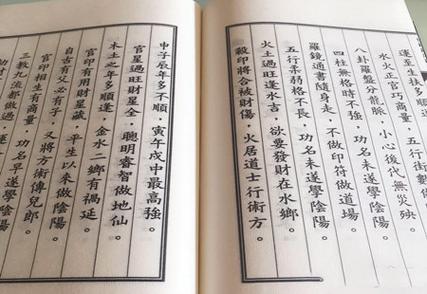 運至生計多順遂，五行術數傳
水火正官巧商量，
八卦羅盤分龍脈，小心後代無災殃。
四柱無格時不強，功名未遂學陰陽。
羅鏡通書隨身走，不做印符做道場。
五行柔弱格不長，功名未遂學陰陽。
火土過旺逢水吉，欲要發財在水鄉。
殺印將合被財傷，火居道士行術方。
申子辰年多不順，寅午戌中最高強。
官星過旺財星全，聰明睿智做地仙。
木土之年多順逢，金水二鄉有禍延。
官印有用財星藏，平生以來做陰陽。
自古有父必有子，又將方術傳兒郎。
官印相生有商量，功名早遂學陰陽。
三教九流都做過，